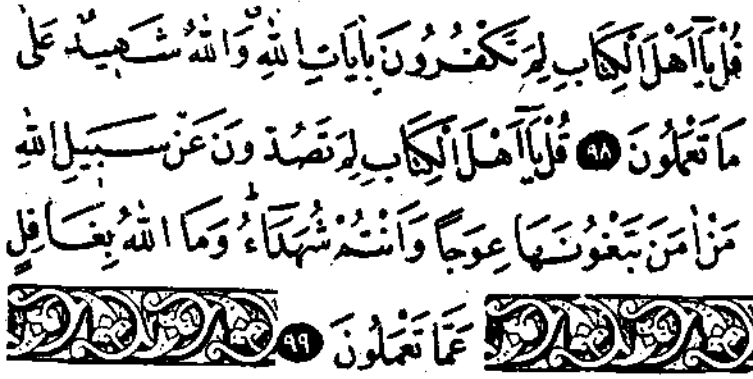 قُلْ يَٓا اَهْلَ الْكِتَابِ لِمَ تَكْفُرُونَ بِاٰيَاتِ اللّٰهِ وَاللّٰهُ شَهٖيدٌ عَلٰى
مَا تَعْمَلُونَ ﴿٩٨﴾ قُلْ يَٓا اَهْلَ الْكِتَابِ لِمَ تَصُدُّونَ عَنْ سَبٖيلِ اللّٰهِ
مَنْ اٰمَنَ تَبْغُونَهَا عِوَجًا وَاَنْتُمْ شُهَدَٓاءُ وَمَا اللّٰهُ بِغَافِلٍ
عَمَّا تَعْمَلُونَ ﴿٩٩﴾